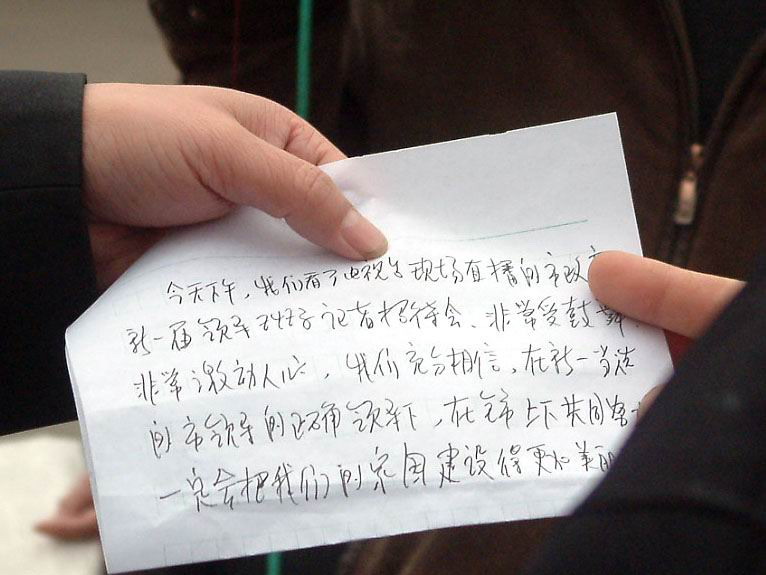 今天下午，我们看了电视台现场直播的市政
新一届领导 记者招待会、非常受鼓舞
非常激动人心，我们充分相信，在新一当选
的市领导的正确领导下，在全市上下共同努
一定会把我们的家园建设得更加美丽